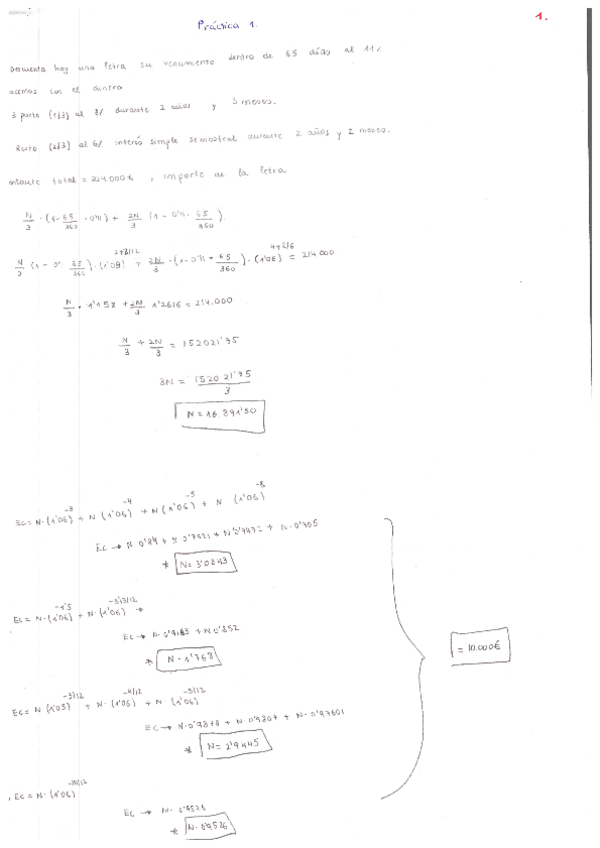 1.
Práctica 1.
Descuenta hoy una letra su vencimiento dentro de 65 días al 11%
con el dinero
3 parte (1/3) al 8% durante 2 años y 3 meses.
Resto (2/3) al 6% interés simple semestral durante 2 años y 2 meses.
total = 214.000€, importe de la letra
N/3 · (1 - 65/360 · 0'11) + 2N/3 (1 - 0'11 · 65/360)
N/3 (1 - 0'11 65/360) · (1'08)^2+3/12 + 2N/3 · (1 - 0'11 · 65/360) · (1'06)^4+2/6 = 214.000
N/3 · 1'158 + 2N/3 1'2616 = 214.000
N/3 + 2N/3 = 152021'75
3N = 152021'75/3
N = 16.891'30
EC = N·(1'06)^-3 + N (1'06)^-4 + N (1'06)^-5 + N (1'06)^-6
EC → N 0'84 + N 0'7921 + N 0'7472 + N·0'705
* N = 3'0843
EC = N·(1'06)^-1'5 + N·(1'06)
EC → N· + N 0'852
* N·1'768
EC = N (1'05)^-3/12 + N·(1'06)^-4/12 + N (1'06)^-5/12
EC → N·0'9878 + N·0'9807 + N·0'97601
* N = 2'9445
EC = N·(1'06)
EC →
* N·0'9526
= 10.000€